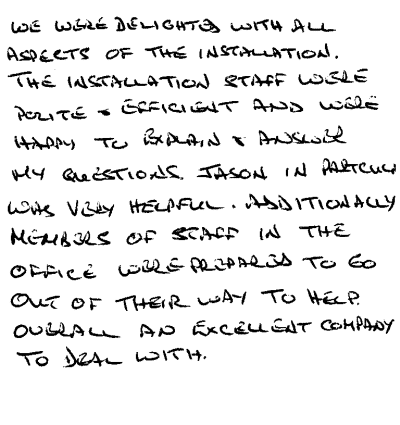 WE WERE DELIGHTED WITH ALL
ASPECTS OF THE INSTALLATION.
THE INSTALLATION STAFF WERE
POLITE & EFFICIENT AND WERE
HAPPY TO EXPLAIN & ANSWER
MY QUESTIONS. JASON IN PARTICULAR
WAS VERY HELPFUL. ADDITIONALLY
MEMBERS OF STAFF IN THE
OFFICE WERE PREPARED TO GO
OUT OF THEIR WAY TO HELP.
OVERALL AN EXCELLENT COMPANY
TO DEAL WITH.